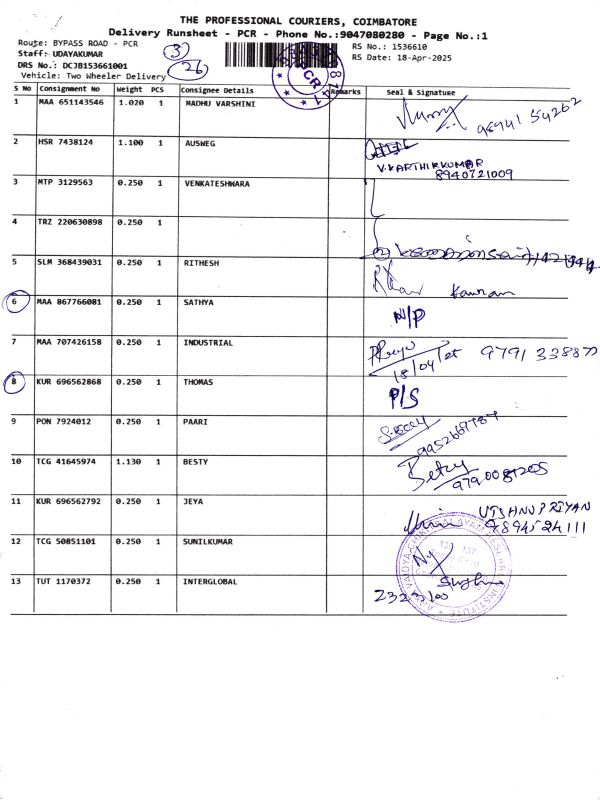 THE PROFESSIONAL COURIERS, COIMBATORE
Delivery Runsheet - PCR - Phone No.:9047080280 - Page No.:1
Route: BYPASS ROAD - PCR
RS No.: 1536610
Staff: UDAYAKUMAR
RS Date: 18-Apr-2025
DRS No.: DCJB153661001
Vehicle: Two Wheeler Delivery
3
26
PCR
S No Consignment No Weight PCS Consignee Details Remarks Seal & Signature
1 MAA 651143546 1.020 1 MADHU VARSHINI
98941 54262
2 HSR 7438124 1.100 1 AUSWEG
V.KARTHIKKUMAR
8940721009
3 MTP 3129563 0.250 1 VENKATESHWARA
4 TRZ 220630898 0.250 1
5 SLM 368439031 0.250 1 RITHESH
6 MAA 867766081 0.250 1 SATHYA N/P
7 MAA 707426158 0.250 1 INDUSTRIAL
18/04
8 KUR 696562868 0.250 1 THOMAS P/S
9 PON 7924012 0.250 1 PAARI
9952669787
10 TCG 41645974 1.130 1 BESTY Betsy
11 KUR 696562792 0.250 1 JEYA VISHNUPRIYAN
9894524111
12 TCG 50851101 0.250 1 SUNILKUMAR
13 TUT 1170372 0.250 1 INTERGLOBAL
2323100